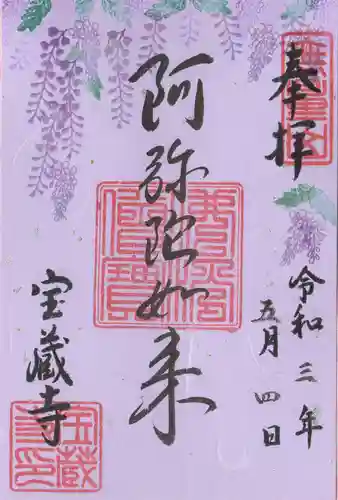 奉拝
令和三年
五月四日
阿弥陀如来
宝蔵寺